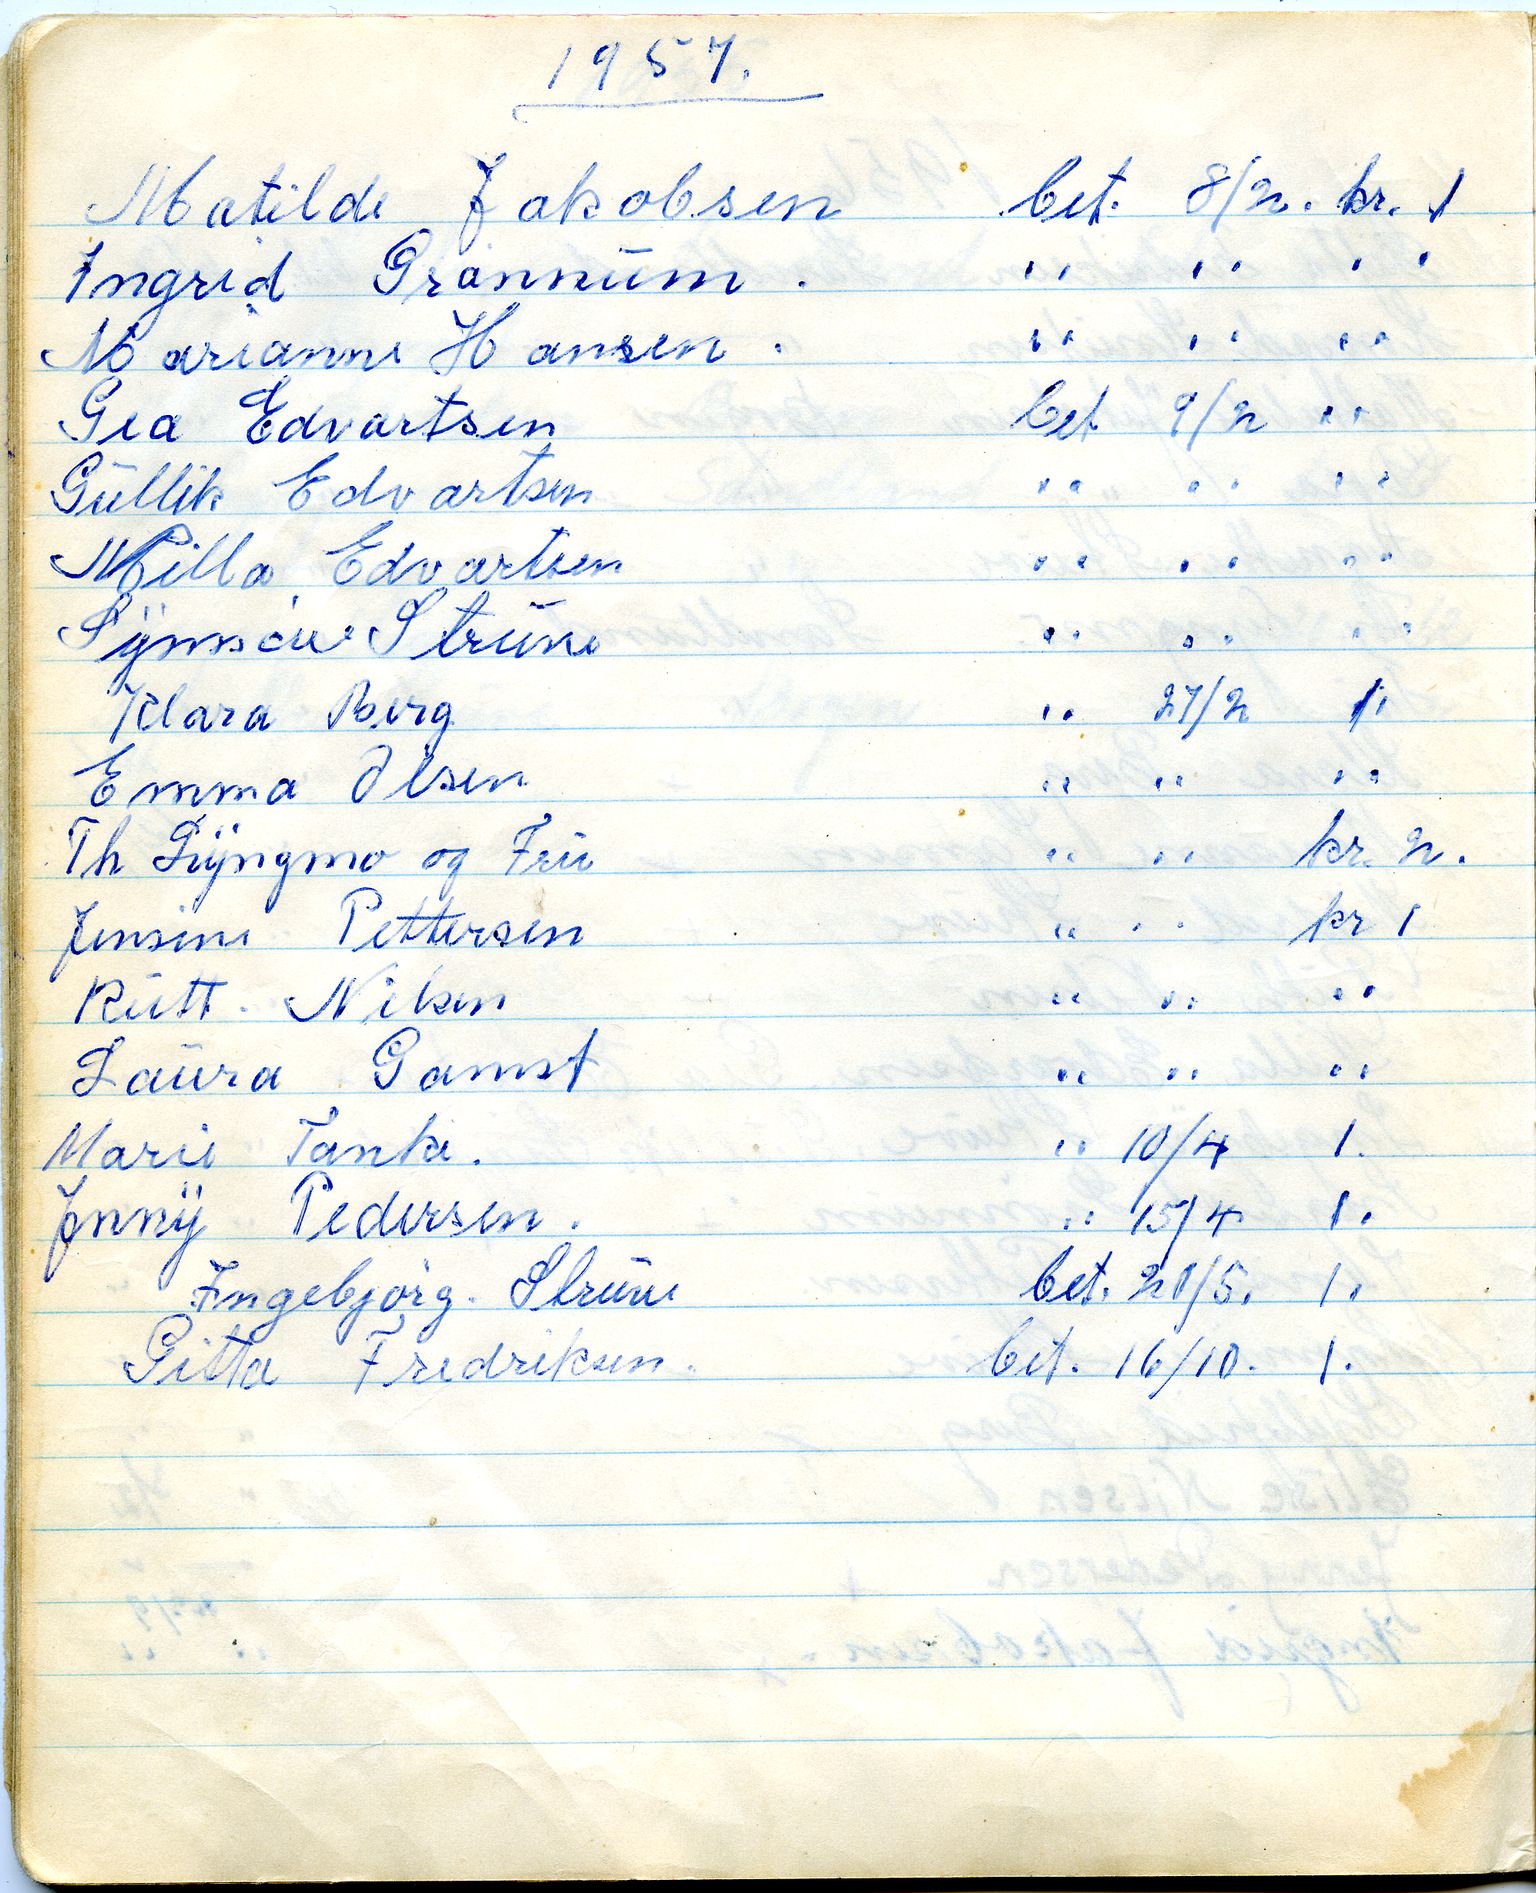 1957.
Matilde Jakobsen bet. 8/2. kr. 1
Ingrid Grønnum. " " " "
Marianne Hansen. " " "
Gea Edvartsen bet 9/2 "
Gullik Edvartsen " " "
Milla Edvartsen " " "
Synnøve Strüve " " "
Klara Berg " 27/2 1"
Emma Olsen " " "
Th Lyngmo og Frü " " kr. 2.
Jensine Pettersen " " kr 1
Rütt. Nilsen " " "
Laura Gamst " " "
Marie Tanke. " 10/4 1.
Jenny Pedersen. " 15/4 1.
Ingebjørg. Strüve bet. 20/5. 1.
Gitta Fredriksen. bet. 16/10. 1.